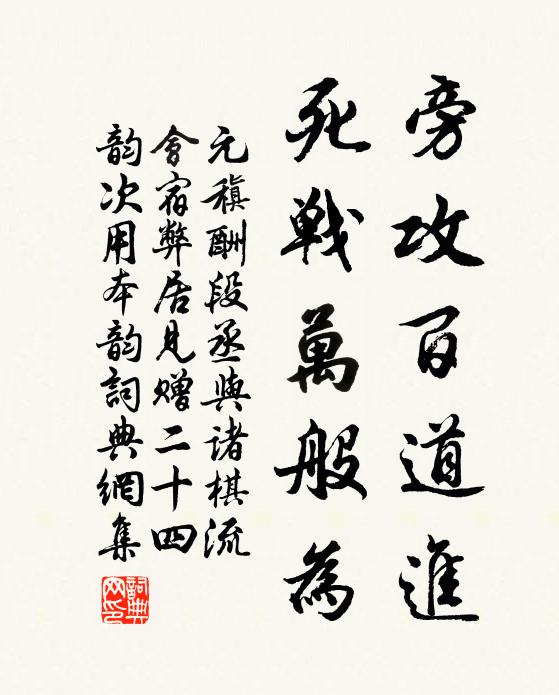 旁攻百道進
死戰萬般為
元稹酬段丞與諸棋流
會宿弊居見贈二十四
韵次用本韵詞典網集
詞典
网印